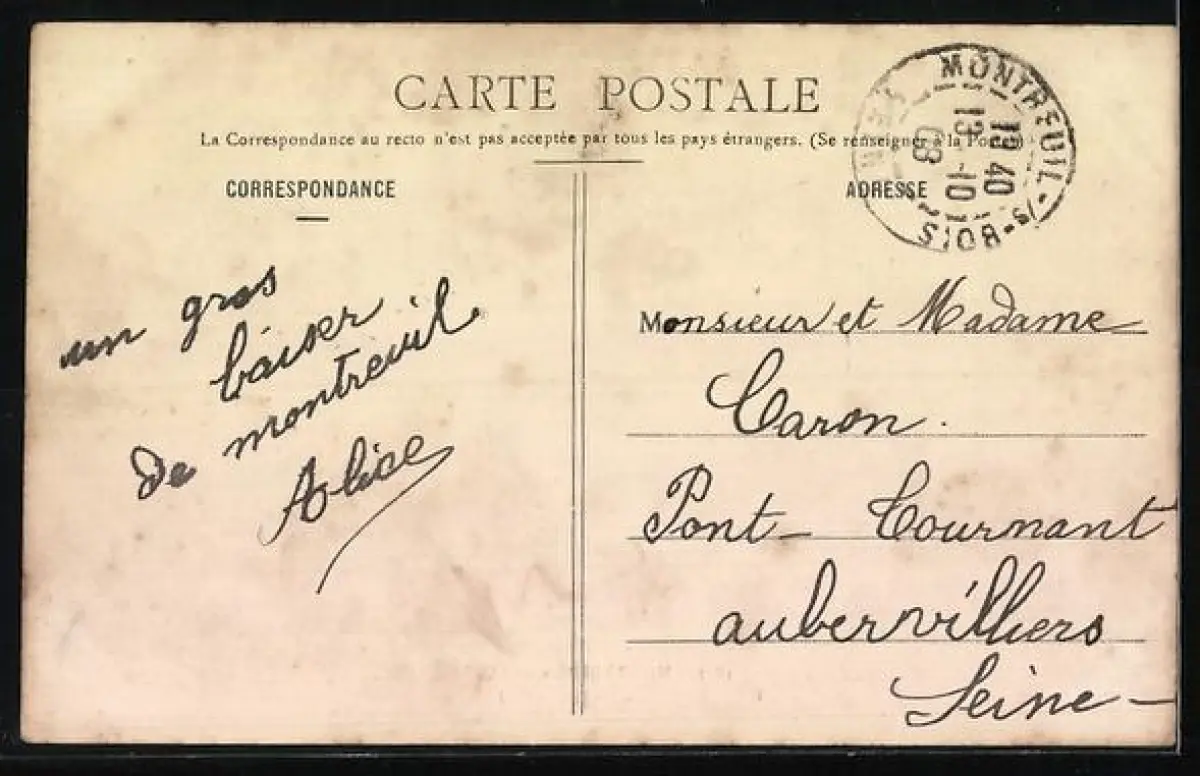 CARTE POSTALE
La Correspondance au recto n'est pas acceptée par tous les pays étrangers. (Se renseigner à la Po
CORRESPONDANCE
ADRESSE
MONTREUIL-s/s-BOIS
18 40
13 -10
08
un gros
baiser
de montreuil
Alice
Monsieur et Madame
Caron.
Pont- Tournant
aubervilliers
Seine-